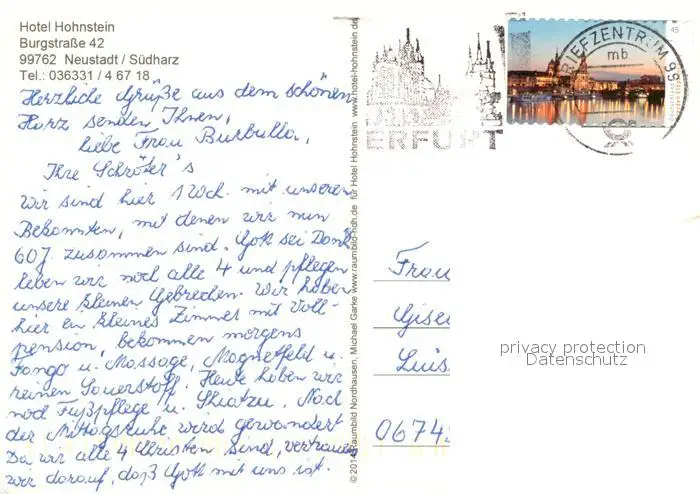 Hotel Hohnstein
Burgstraße 42
99762 Neustadt / Südharz
Tel.: 036331 / 4 67 18
Herzliche Grüße aus dem schönen
Harz senden Ihnen,
liebe Frau Burbulla,
Ihre Schröter's
Wir sind hier 1 Wch. mit unseren
Bekannten, mit denen wir nun
60 J. zusammen sind. Gott sei Dank
leben wir noch alle 4 und pflegen
unsere kleinen Gebrechen. Wir haben
hier ein kleines Zimmer mit Voll-
pension, bekommen morgens
Fango u. Massage, Magnetfeld u.
reinen Sauerstoff. Heute haben wir
noch Fußpflege u. Shiatzu. Nach
der Mittagsruhe wird gewandert
Da wir alle 4 Christen sind, vertrauen
wir darauf, daß Gott mit uns ist.
© 2014 Raumbild Nordhausen, Michael Garke www.raumbild-ndh.de für Hotel Hohnstein www.hotel-hohnstein.de
ERFURT
BRIEFZENTRUM 99
mb
45
Frau
Gise
Luis
06749
privacy protection
Datenschutz